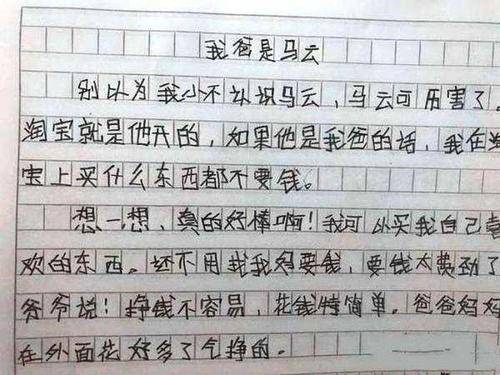 我爸是马云
别以为我小不认识马云,马云可历害了
淘宝就是他开的,如果他是我爸的话,我在淘
宝上买什么东西都不要钱。
想一想,真的好棒啊!我可以买我自己喜
欢的东西。还不用找我妈要钱,要钱太费劲了
爷爷说!挣钱不容易,花钱特简单。爸爸妈妈
在外面花好多了气挣的。